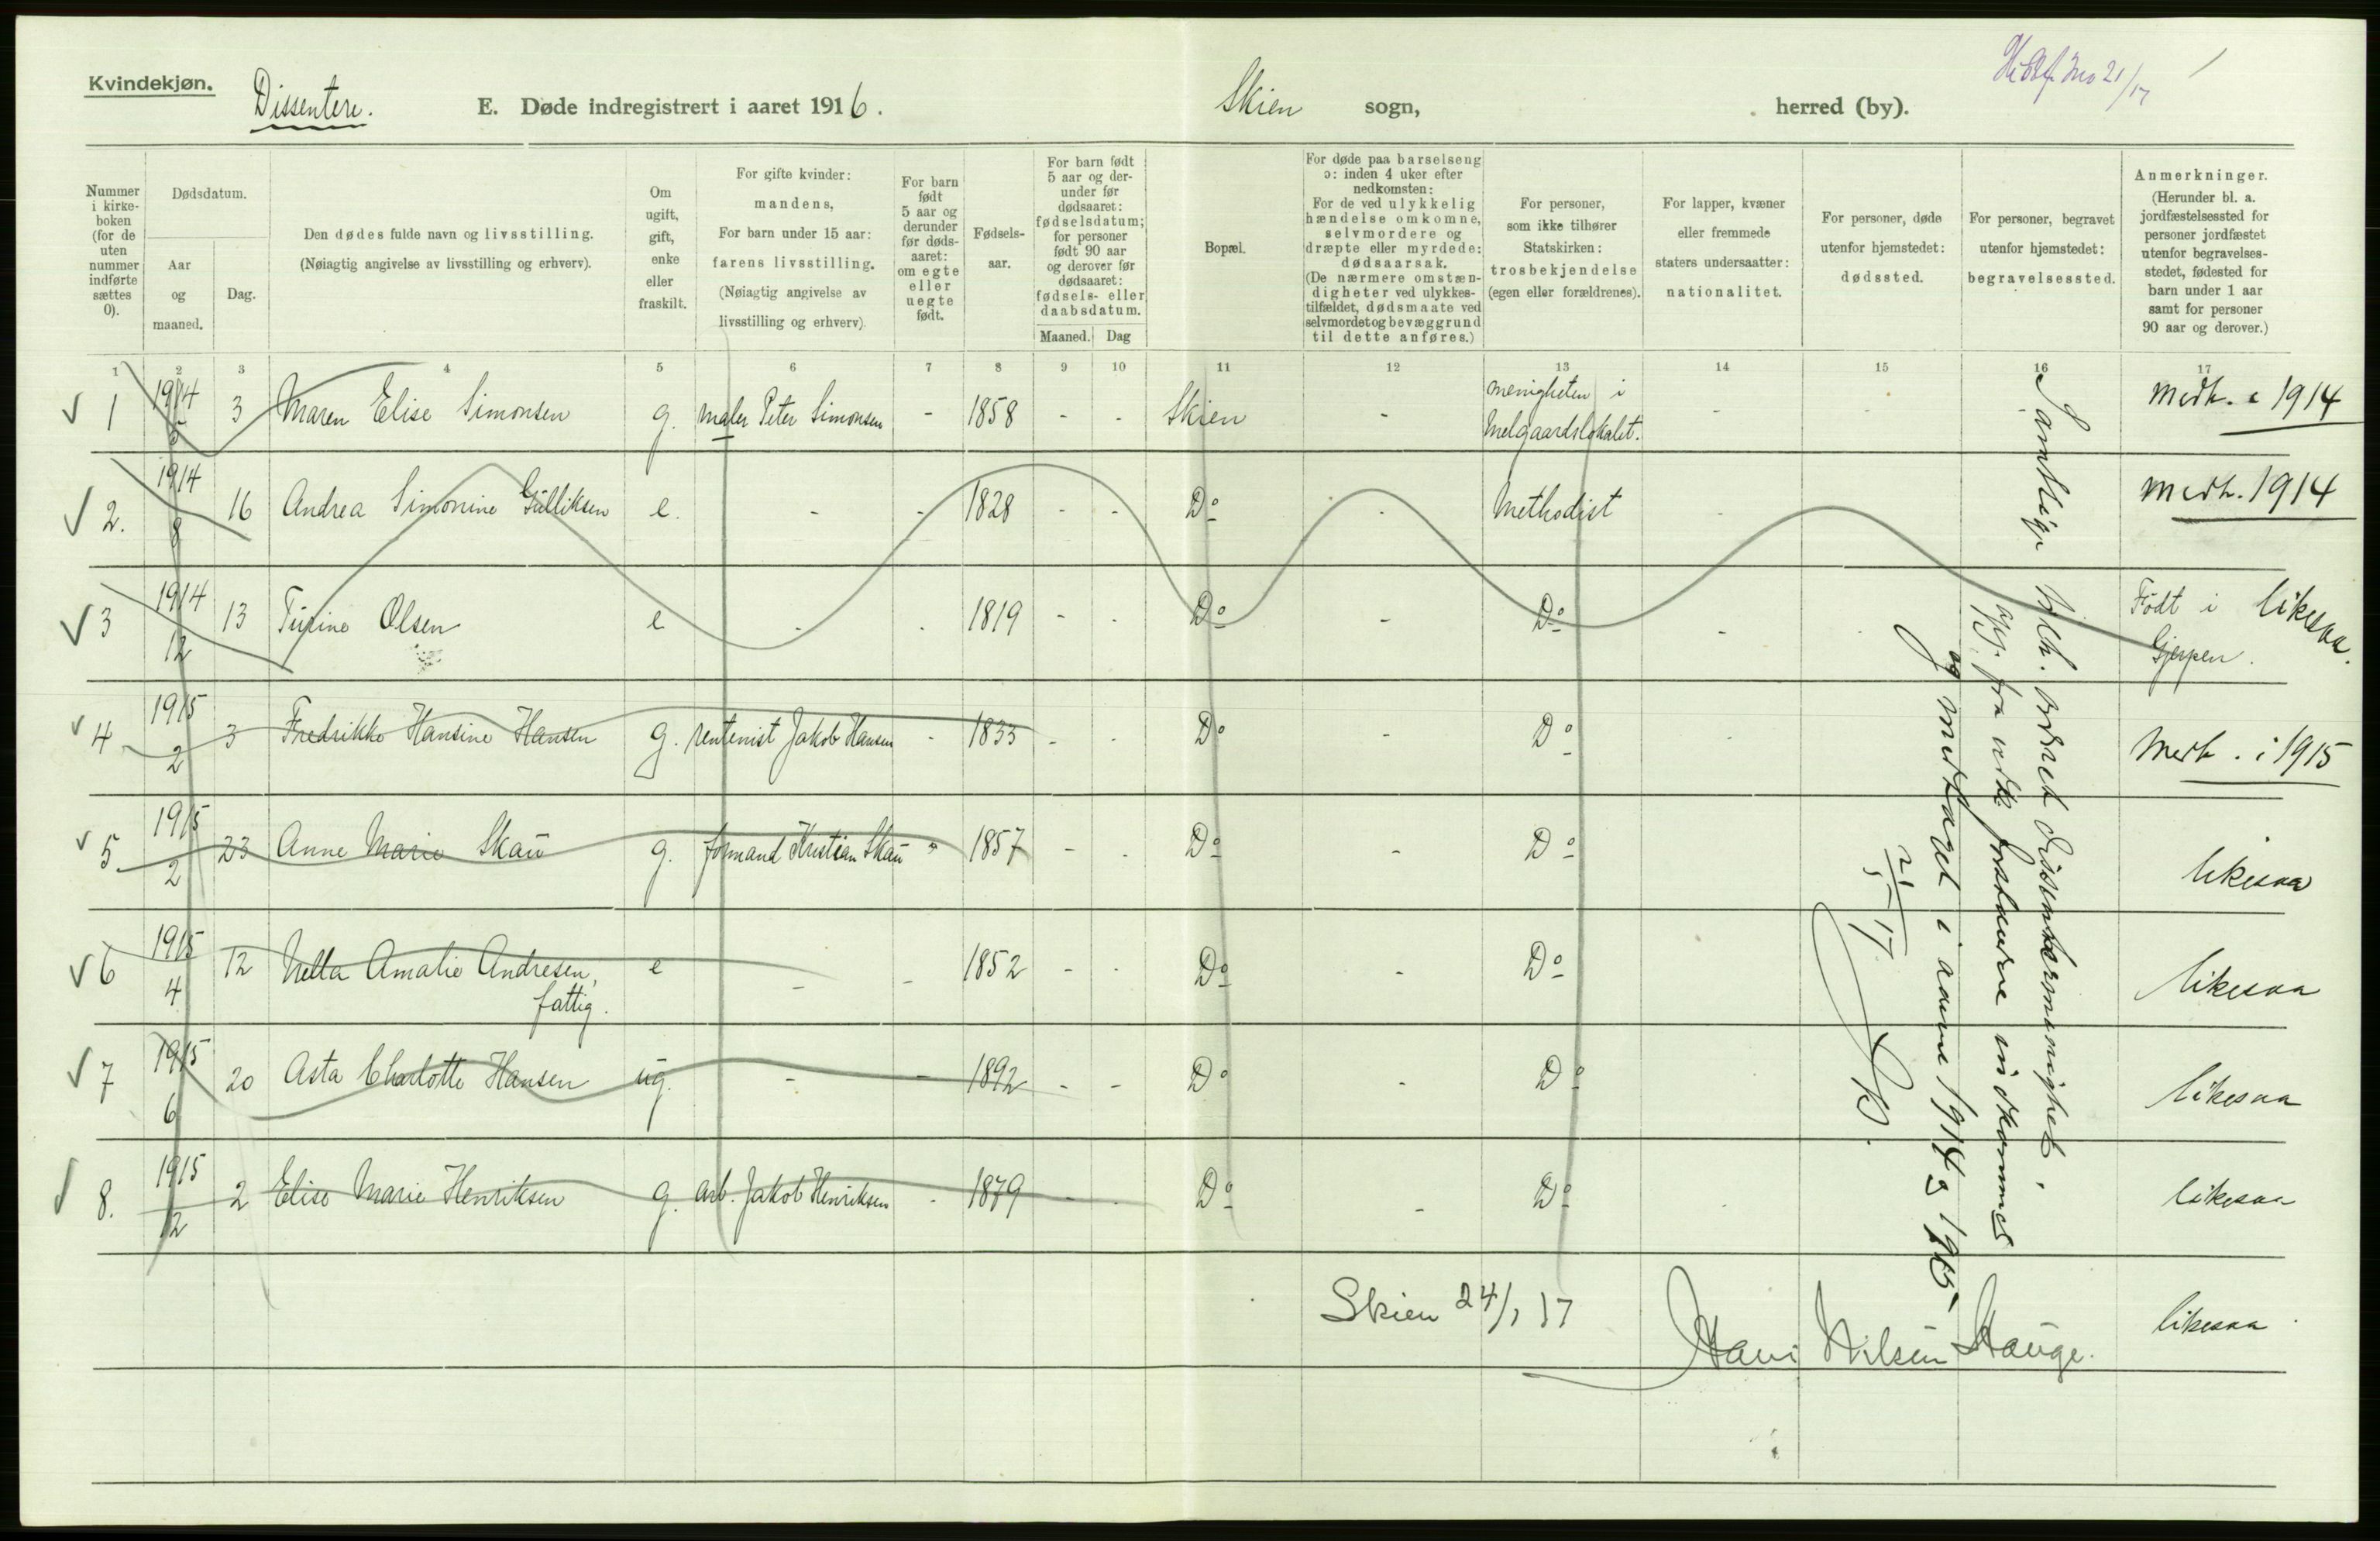 Kvindekjøn.
Dissentere.
E. Døde indregistrert i aaret 1916.
Skien sogn,
herred (by).
21/17
Nummer i kirke-boken (for de uten nummer indførte sættes 0).
Dødsdatum.
Aar og maaned.
Dag.
Den dødes fulde navn og livsstilling.
(Nøiagtig angivelse av livsstilling og erhverv).
Om ugift, gift, enke eller fraskilt.
For gifte kvinder: mandens,
For barn under 15 aar: farens livsstilling.
(Nøiagtig angivelse av livsstilling og erhverv).
For barn født 5 aar og derunder før døds-aaret: om egte eller uegte født.
Fødsels-aar.
For barn født 5 aar og der-under før dødsaaret: fødselsdatum; for personer født 90 aar og derover før dødsaaret: fødsels- eller daabsdatum.
Maaned. Dag
Bopæl.
For døde paa barselseng ɔ: inden 4 uker efter nedkomsten:
For de ved ulykkelig hændelse omkomne, selvmordere og dræpte eller myrdede: dødsaarsak.
(De nærmere omstæn-digheter ved ulykkes-tilfældet, dødsmaate ved selvmordet og bevæggrund til dette anføres.)
For personer, som ikke tilhører Statskirken: trosbekjendelse (egen eller forældrenes).
For lapper, kvæner eller fremmede staters undersaatter: nationalitet.
For personer, døde utenfor hjemstedet: dødssted.
For personer, begravet utenfor hjemstedet: begravelsessted.
Anmerkninger.
(Herunder bl. a. jordfæstelsessted for personer jordfæstet utenfor begravelses-stedet, fødested for barn under 1 aar samt for personer 90 aar og derover.)
1 2 3 4 5 6 7 8 9 10 11 12 13 14 15 16 17
1 1914 5 3 Maren Elise Simonsen g. maler Peter Simonsen - 1858 - - Skien - menigheten i Melgaardslokalet. - - medt. i 1914
2. 1914 8 16 Andrea Simonine Gulliksen e. - - 1828 - - Do - Methodist - medt. 1914
3 1914 12 13 Turine Olsen e - - 1819 - - Do - Do - Født i Gjerpen. likesaa.
4 1915 2 3 Fredrikke Hansine Hansen g. rentenist Jakob Hansen - 1833 - - Do - Do - Medt. i 1915
5 1915 2 23 Anne Marie Skau g. formand Kristian Skau " 1857 - - Do - Do likesaa
6 1915 4 12 Nella Amalie Andresen, fattig. e - - 1852 - - Do - Do likesaa
7 1915 6 20 Asta Charlotte Hansen ug. - - 1892 - - Do - Do likesaa
8. 1915 12 2 Elise Marie Henriksen g. arb. Jakob Henriksen - 1879 - - Do - Do likesaa
Samtlige
opg. fra vedk. forstandere indkommet
og medtaget i aarene 1914 & 1915.
21/5 17.
likesaa
Skien 24/1 17
Hans Nilsen Hauge.